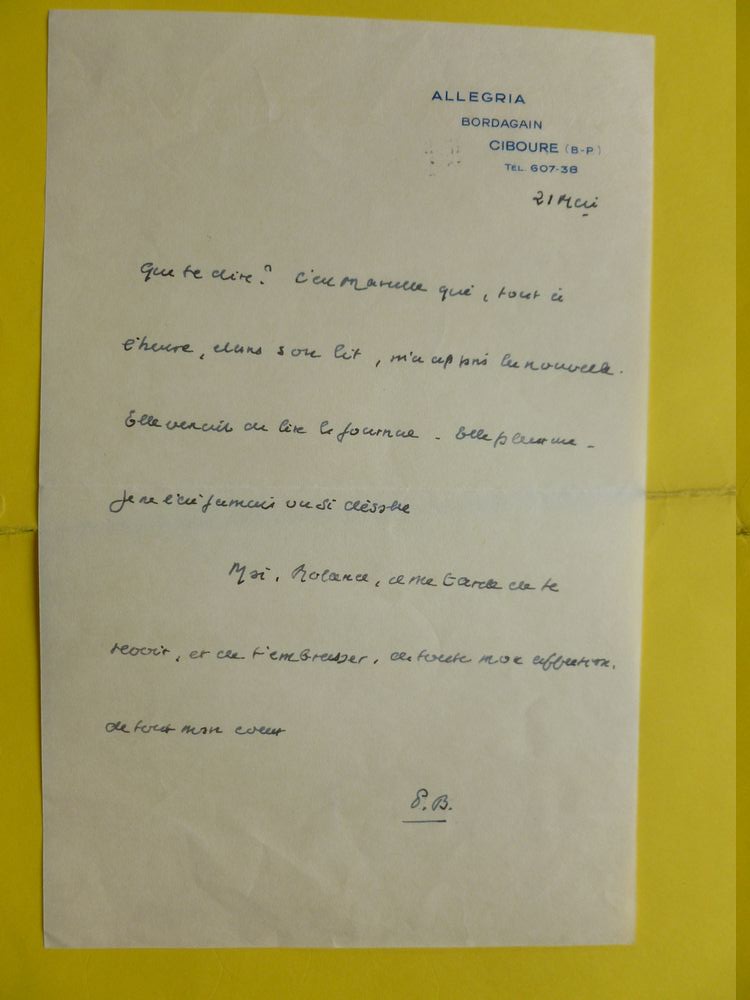 ALLEGRIA
BORDAGAIN
CIBOURE (B-P)
TEL. 607-38
21 Mai
Que te dire? C'est Marcelle qui, tout à
l'heure, dans son lit, m'a appris la nouvelle.
Elle venait de lire le journal. Elle pleurait.
Je ne l'ai jamais vu si désolée
Moi, Roland, il me tarde de te
revoir, et de t'embrasser, de toute mon affection.
de tout mon coeur
P.B.